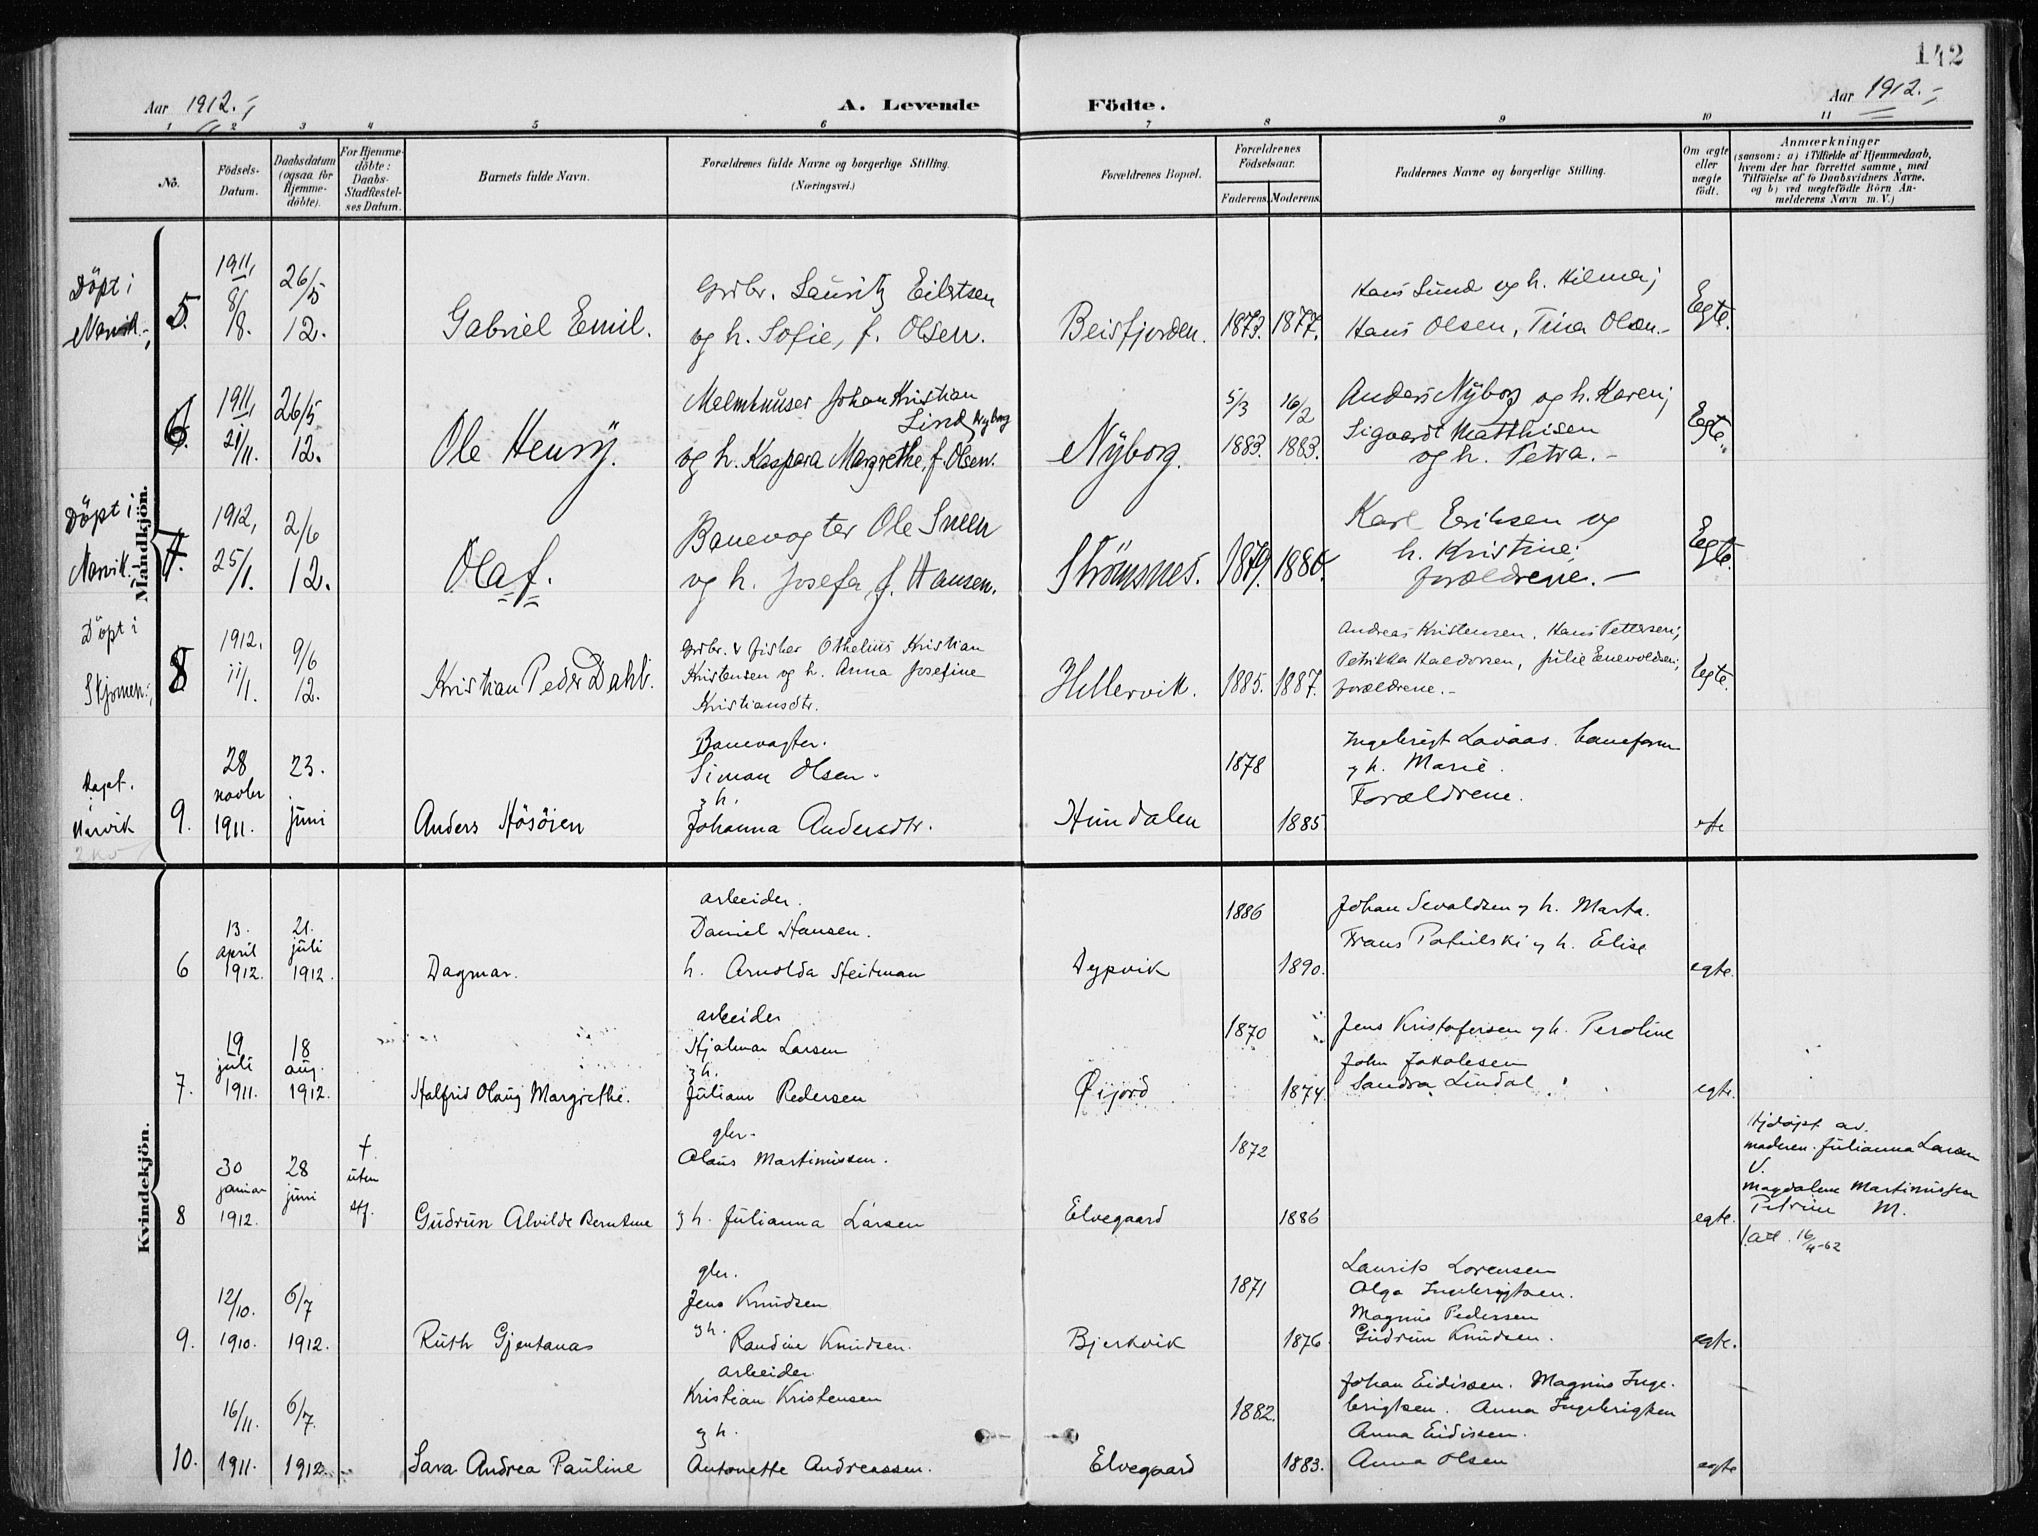 142
Aar 1912.
A. Levende Födte.
Aar 1912.
1 2 3 4 5 6 7 8 9 10 11
No.
Födsels-Datum.
Daabsdatum (ogsaa for Hjemme-döbte).
For Hjemme-döbte: Daabs-Stadfæstel-ses Datum.
Barnets fulde Navn.
Forældrenes fulde Navne og borgerlige Stilling.
(Næringsvei.)
Forældrenes Bopæl.
Forældrenes Födselsaar.
Faderens. Moderens.
Faddernes Navne og borgerlige Stilling.
Om ægte eller uægte födt.
Anmærkninger
(saasom: a) i Tilfælde af Hjemmedaab,
hvem der har forrettet samme, med
Tilföielse af to Daabsvidners Navne,
og b) ved uægtefödte Börn An-
melderens Navn m. V.)
Mandkjön.
Döpt i Narvik.
5. 1911, 8/8. 26/5 12. Gabriel Emil.
Grdbr. Lauritz Eilertsen
og h. Sofie, f. Olsen.
Beisfjorden. 1873. 1877.
Hans Lund og h. Hilma;
Hans Olsen, Tina Olsen.
Egte.
6. 1911, 21/11. 26/5 12. Ole Henry.
Johan Kristian
Lind Nyborg
og h. Kaspara Margrethe, f. Olsen.
Nyborg. 5/3 1883. 16/2 1883.
Anders Nyborg og h. Karen;
Sigvardt Matthisen
og h. Petra.
Egte.
Döpt i Narvik.
7. 1912, 25/1. 2/6 12. Olaf.
Banevogter Ole Sneen
og h. Josefa f. Hansen.
Strömsnes. 1879. 1880.
Karl Eriksen og
h. Kristine;
forældrene.
Egte.
Döpt i Skjomen;
8 1912. 11/1. 9/6 12. Kristian Peder Dahl.
Grdbr. & fisker Othelius Kristian
Kristensen og h. Anna Josefine
Kristiansdtr.
Hellervik. 1885. 1887.
Andreas Kristensen, Hans Pettersen;
Petrikka Haldorsen, Julie Enevoldsen;
forældrene.
Egte.
Döpt. i Narvik
9. 28 novber 1911. 23. juni Anders Hösöien
Banevogter.
Simon Olsen.
og h.
Johanna Andersdtr.
Hundalen 1878 1885
Ingebrigt Lavaas. baneform
og h. Marie.
Forældrene.
Kvindekjön.
6 13. april 1912. 21. juli 1912. Dagmar.
arbeider.
Daniel Hansen.
h. Arnolda Heitman
Dypvik 1886 1890.
Johan Sevaldsen og h. Marta.
Frans og h. Elise
egte.
7. 19 juli 1911. 18 aug. 1912. Halfrid Olaug Margrethe.
arbeider
Hjalmar Larsen
og h.
Juliane Pedersen
Øijord 1870 1874.
Jens Kristofersen og h. Peroline
John Jakobsen
Sandra Lindal
egte.
8 30 januar 1912. 28 juni † uten stf. Gudrun Alvilde Berntine
gbr.
Olaus Martinussen.
og h. Julianna Larsen
Elvegaard 1872 1886
egte.
Hjdöpt av.
moderen. Julianna Larsen
V.
Magdalene Martinussen
Petrine M.
16/4-62
9. 12/10. 1910. 6/7 1912. Ruth Gjentanas
gbr.
Jens Knudsen
og h.
Randine Knudsen.
Bjerkvik 1871 1876
Laurits Lorensen
Olga Ingebrigtsen.
Magnus Pedersen
Gudrun Knudsen.
egte.
10. 16/11. 1911. 6/7. 1912. Sara Andrea Pauline
arbeider.
Kristian Kristensen
og h.
Antonette Andreassen.
Elvegaard 1882. 1883.
Johan Eidissen. Magnus Inge-
brigtsen. Anna Ingebrigtsen
Anna Eidissen.
Anna Olsen
egte